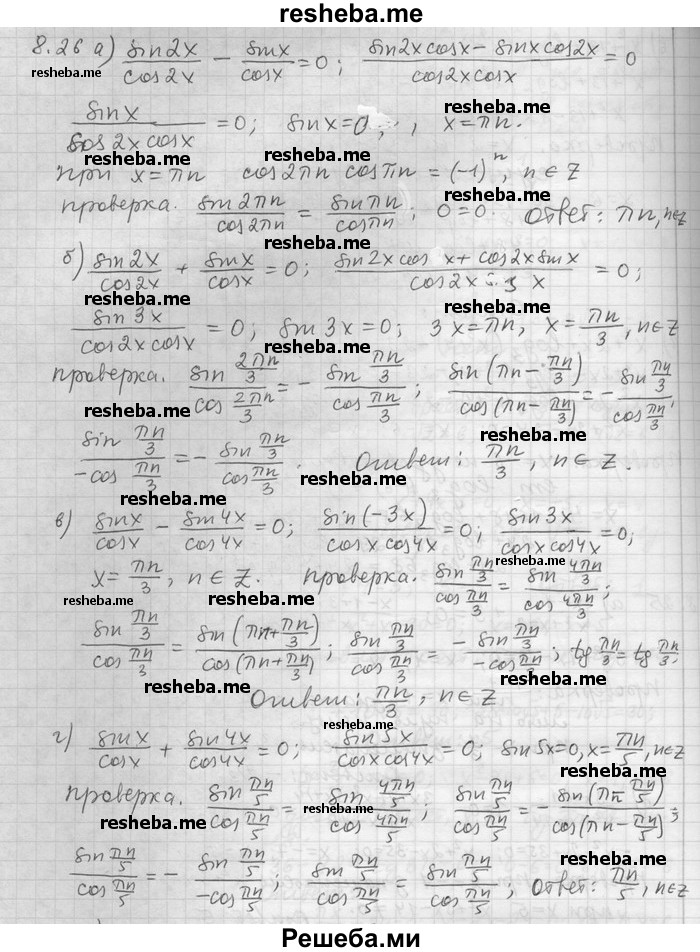 resheba.me
8.26 а) sin2x/cos2x − sinx/cosx = 0; (sin2x cosx − sinx cos2x)/(cos2x cosx) = 0
resheba.me resheba.me
sinx/(cos2x cosx) = 0; sinx = 0; , x = πn.
resheba.me resheba.me
при x = πn cos2πn cosπn = (−1)ⁿ, n ∈ Z
resheba.me resheba.me
проверка. sin2πn/cos2πn = sinπn/cosπn; 0 = 0. Ответ: πn, n∈Z
resheba.me resheba.me
б) sin2x/cos2x + sinx/cosx = 0; (sin2x cos x + cos2x sinx)/(cos2x x) = 0;
resheba.me resheba.me
sin3x/(cos2x cosx) = 0; sin3x = 0; 3x = πn, x = πn/3, n∈Z
resheba.me resheba.me
проверка. sin 2πn/3 / cos 2πn/3 = − sin πn/3 / cos πn/3; sin(πn − πn/3)/cos(πn − πn/3) = − sin πn/3 / cos πn/3;
resheba.me resheba.me
sin πn/3 / −cos πn/3 = − sin πn/3 / cos πn/3. Ответ: πn/3, n ∈ Z.
resheba.me resheba.me
в) sinx/cosx − sin4x/cos4x = 0; sin(−3x)/(cosx cos4x) = 0; sin3x/(cosx cos4x) = 0;
resheba.me resheba.me
x = πn/3, n ∈ Z. проверка. sin πn/3 / cos πn/3 = sin 4πn/3 / cos 4πn/3;
resheba.me resheba.me
sin πn/3 / cos πn/3 = sin(πn + πn/3)/cos(πn + πn/3); sin πn/3 / cos πn/3 = − sin πn/3 / −cos πn/3; tg πn/3 = tg πn/3.
resheba.me resheba.me
Ответ: πn/3, n∈Z
resheba.me resheba.me
г) sinx/cosx + sin4x/cos4x = 0; sin5x/(cosx cos4x) = 0; sin5x = 0, x = πn/5, n∈Z
resheba.me
проверка. sin πn/5 / cos πn/5 = sin 4πn/5 / cos 4πn/5; sin πn/5 / cos πn/5 = − sin(πn − πn/5)/cos(πn − πn/5);
resheba.me resheba.me resheba.me
sin πn/5 / cos πn/5 = − sin πn/5 / −cos πn/5; sin πn/5 / cos πn/5 = sin πn/5 / cos πn/5; Ответ: πn/5, n∈Z
resheba.me resheba.me
Решеба.ми